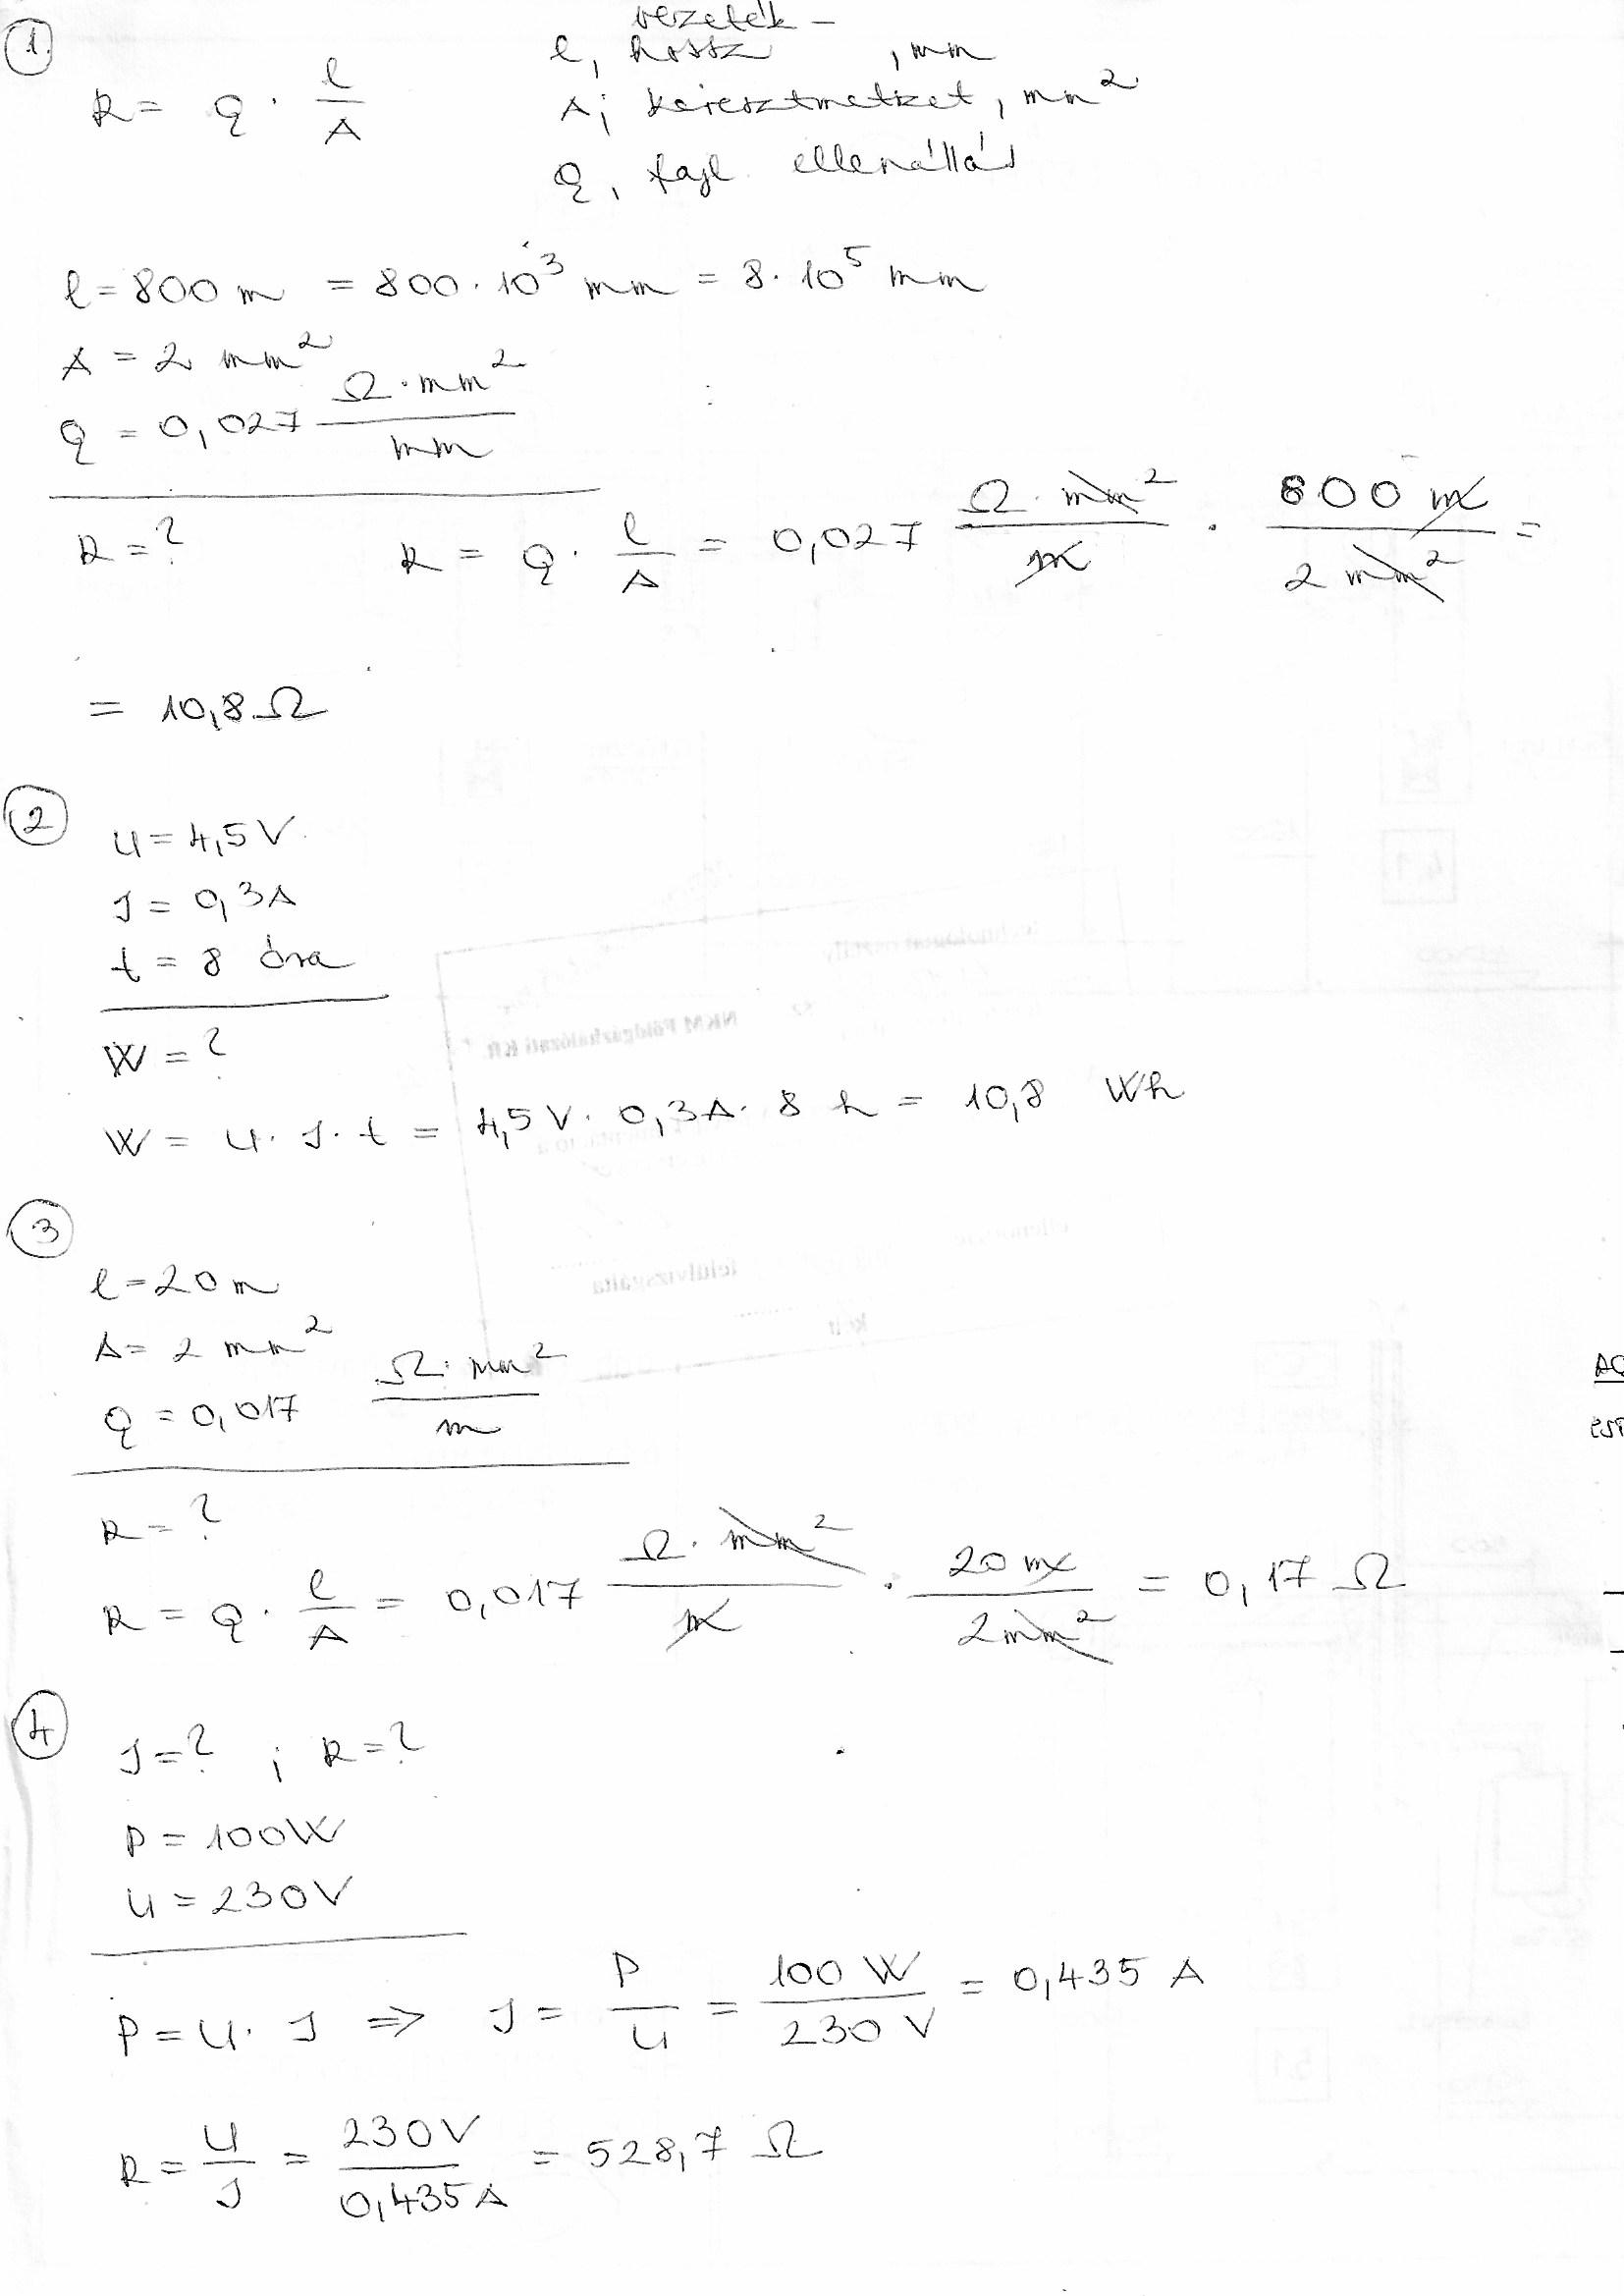 1.
vezeték-
l, hossz , mm
R = ϱ · l/A
A; keresztmetszet, mm²
ϱ, fajl. ellenállás
l = 800 m = 800 · 10³ mm = 8 · 10⁵ mm
A = 2 mm²
ϱ = 0,027 Ω·mm²/mm
R = ? R = ϱ · l/A = 0,027 Ω·mm²/m · 800 m/2 mm² =
= 10,8 Ω
2
U = 4,5 V
I = 0,3 A
t = 8 óra
W = ?
W = U · I · t = 4,5 V · 0,3 A · 8 h = 10,8 Wh
NKM Földgázhálózati Kft.
felülvizsgálta
3
l = 20 m
A = 2 mm²
ϱ = 0,017 Ω·mm²/m
R = ?
R = ϱ · l/A = 0,017 Ω·mm²/m · 20 m/2 mm² = 0,17 Ω
4
I = ? ; R = ?
P = 100 W
U = 230 V
P = U · I ⇒ I = P/U = 100 W/230 V = 0,435 A
R = U/I = 230 V/0,435 A = 528,7 Ω